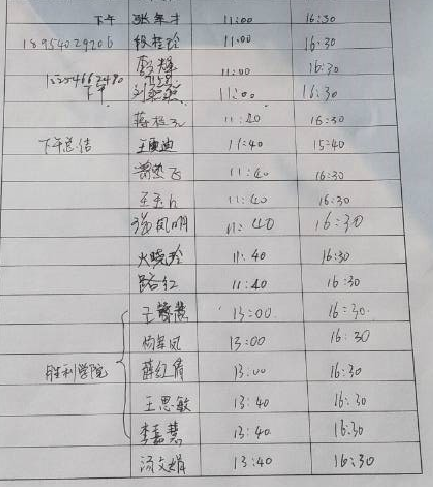 下午 张年才 11:00 16:30
18954029206 段桂玲 11:00 16:30
11:00 16:30
下午 刘 11:00 16:30
蒋桂 11:40 16:30
下午总结 王 迪 11:40 15:40
飞 11:40 16:30
王玉 11:40 16:30
张凤明 11:40 16:30
火晓玲 11:40 16:30
路红 11:40 16:30
王 慧 13:00 16:30
杨军凤 13:00 16:30
胜利学院 薛红倩 13:00 16:30
王思敏 13:40 16:30
李嘉慧 13:40 16:30
汤文娟 13:40 16:30